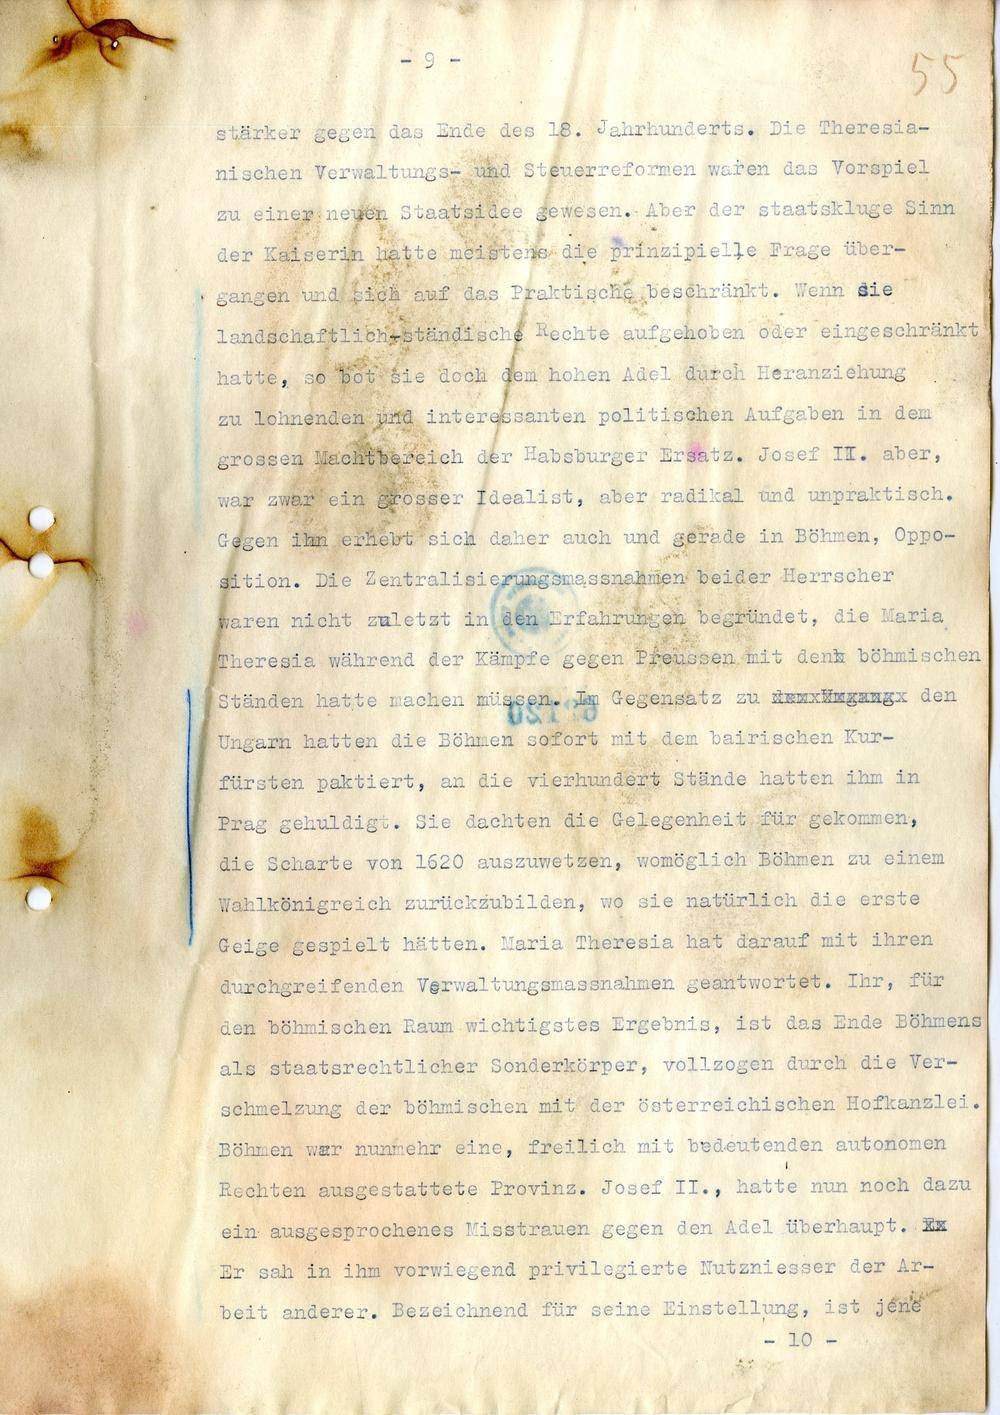 - 9 -
55
stärker gegen das Ende des 18. Jahrhunderts. Die Theresia-
nischen Verwaltungs- und Steuerreformen waren das Vorspiel
zu einer neuen Staatsidee gewesen. Aber der staatskluge Sinn
der Kaiserin hatte meistens die prinzipielle Frage über-
gangen und sich auf das Praktische beschränkt. Wenn sie
landschaftlich-ständische Rechte aufgehoben oder eingeschränkt
hatte, so bot sie doch dem hohen Adel durch Heranziehung
zu lohnenden und interessanten politischen Aufgaben in dem
grossen Machtbereich der Habsburger Ersatz. Josef II. aber,
war zwar ein grosser Idealist, aber radikal und unpraktisch.
Gegen ihn erhebt sich daher auch und gerade in Böhmen, Oppo-
sition. Die Zentralisierungsmassnahmen beider Herrscher
waren nicht zuletzt in den Erfahrungen begründet, die Maria
Theresia während der Kämpfe gegen Preussen mit den böhmischen
Ständen hatte machen müssen. Im Gegensatz zu den
Ungarn hatten die Böhmen sofort mit dem bairischen Kur-
fürsten paktiert, an die vierhundert Stände hatten ihm in
Prag gehuldigt. Sie dachten die Gelegenheit für gekommen,
die Scharte von 1620 auszuwetzen, womöglich Böhmen zu einem
Wahlkönigreich zurückzubilden, wo sie natürlich die erste
Geige gespielt hätten. Maria Theresia hat darauf mit ihren
durchgreifenden Verwaltungsmassnahmen geantwortet. Ihr, für
den böhmischen Raum wichtigstes Ergebnis, ist das Ende Böhmens
als staatsrechtlicher Sonderkörper, vollzogen durch die Ver-
schmelzung der böhmischen mit der österreichischen Hofkanzlei.
Böhmen war nunmehr eine, freilich mit bedeutenden autonomen
Rechten ausgestattete Provinz. Josef II., hatte nun noch dazu
ein ausgesprochenes Misstrauen gegen den Adel überhaupt.
Er sah in ihm vorwiegend privilegierte Nutzniesser der Ar-
beit anderer. Bezeichnend für seine Einstellung, ist jene
- 10 -